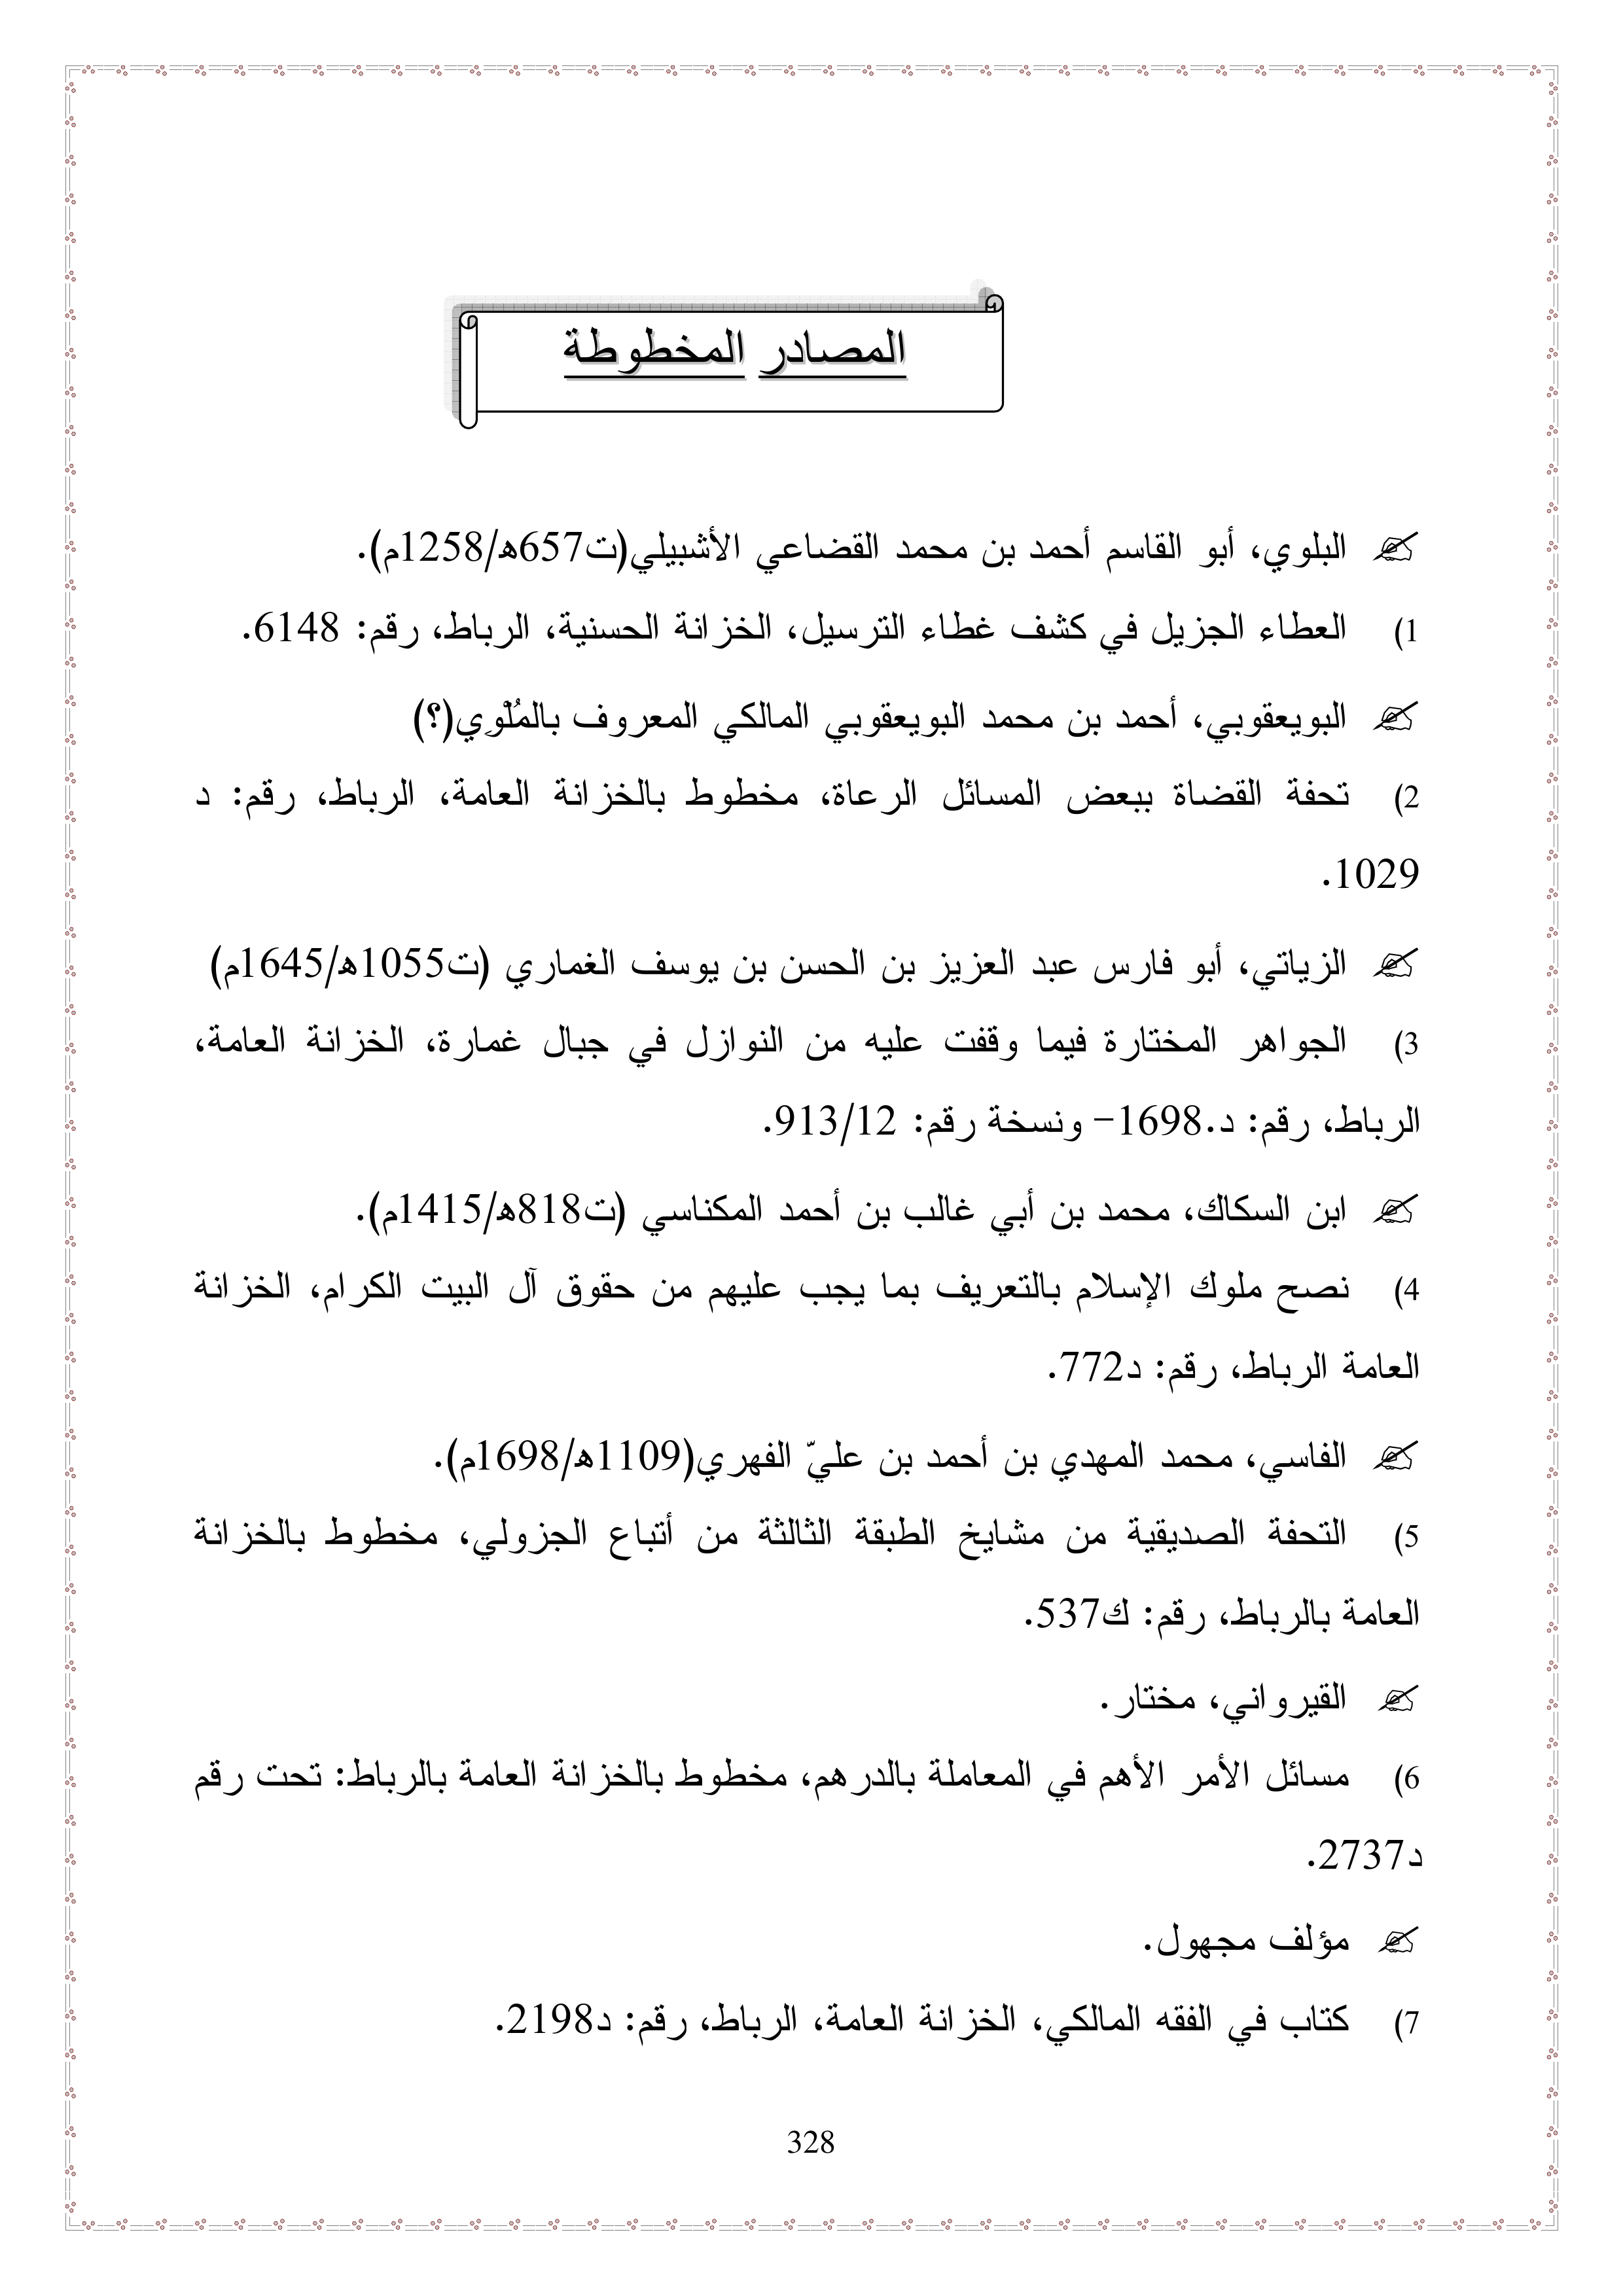 المصادر المخطوطة
البلوي، أبو القاسم أحمد بن محمد القضاعي الأشبيلي(ت657ه/1258م).
1) العطاء الجزيل في كشف غطاء الترسيل، الخزانة الحسنية، الرباط، رقم: 6148.
البويعقوبي، أحمد بن محمد البويعقوبي المالكي المعروف بالمُلْوِي(؟)
2) تحفة القضاة ببعض المسائل الرعاة، مخطوط بالخزانة العامة، الرباط، رقم: د
1029.
الزياتي، أبو فارس عبد العزيز بن الحسن بن يوسف الغماري (ت1055ه/1645م)
3) الجواهر المختارة فيما وقفت عليه من النوازل في جبال غمارة، الخزانة العامة،
الرباط، رقم: د.1698- ونسخة رقم: 913/12.
ابن السكاك، محمد بن أبي غالب بن أحمد المكناسي (ت818ه/1415م).
4) نصح ملوك الإسلام بالتعريف بما يجب عليهم من حقوق آل البيت الكرام، الخزانة
العامة الرباط، رقم: د772.
الفاسي، محمد المهدي بن أحمد بن عليّ الفهري(1109ه/1698م).
5) التحفة الصديقية من مشايخ الطبقة الثالثة من أتباع الجزولي، مخطوط بالخزانة
العامة بالرباط، رقم: ك537.
القيرواني، مختار.
6) مسائل الأمر الأهم في المعاملة بالدرهم، مخطوط بالخزانة العامة بالرباط: تحت رقم
د2737.
مؤلف مجهول.
7) كتاب في الفقه المالكي، الخزانة العامة، الرباط، رقم: د2198.
328